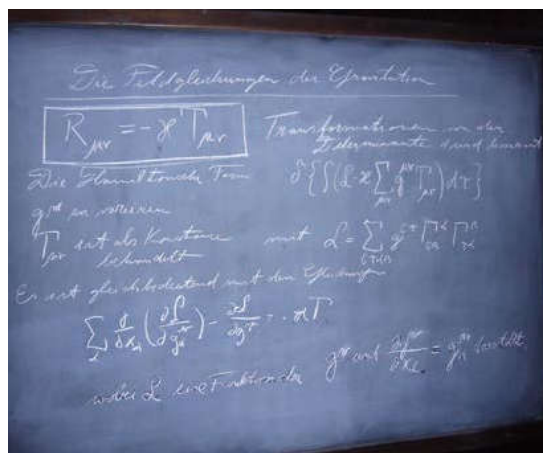 Die Feldgleichungen der Gravitation
R_μν = -ϰ T_μν
Transformationen von der
Determinante
Die Hamiltonsche Form
δ{∫(L - ϰ ∑_μν g^μν T_μν) dτ}
g^μν zu variieren
T_μν ist als Konstante
behandelt
mit L = ∑ g^στ Γ Γ
Es ist gleichbedeutend mit den Gleichungen
∑ ∂/∂x (∂L/∂g) - ∂L/∂g = - ϰ T
wobei L eine Funktion der g^στ und ∂g^στ/∂x = g